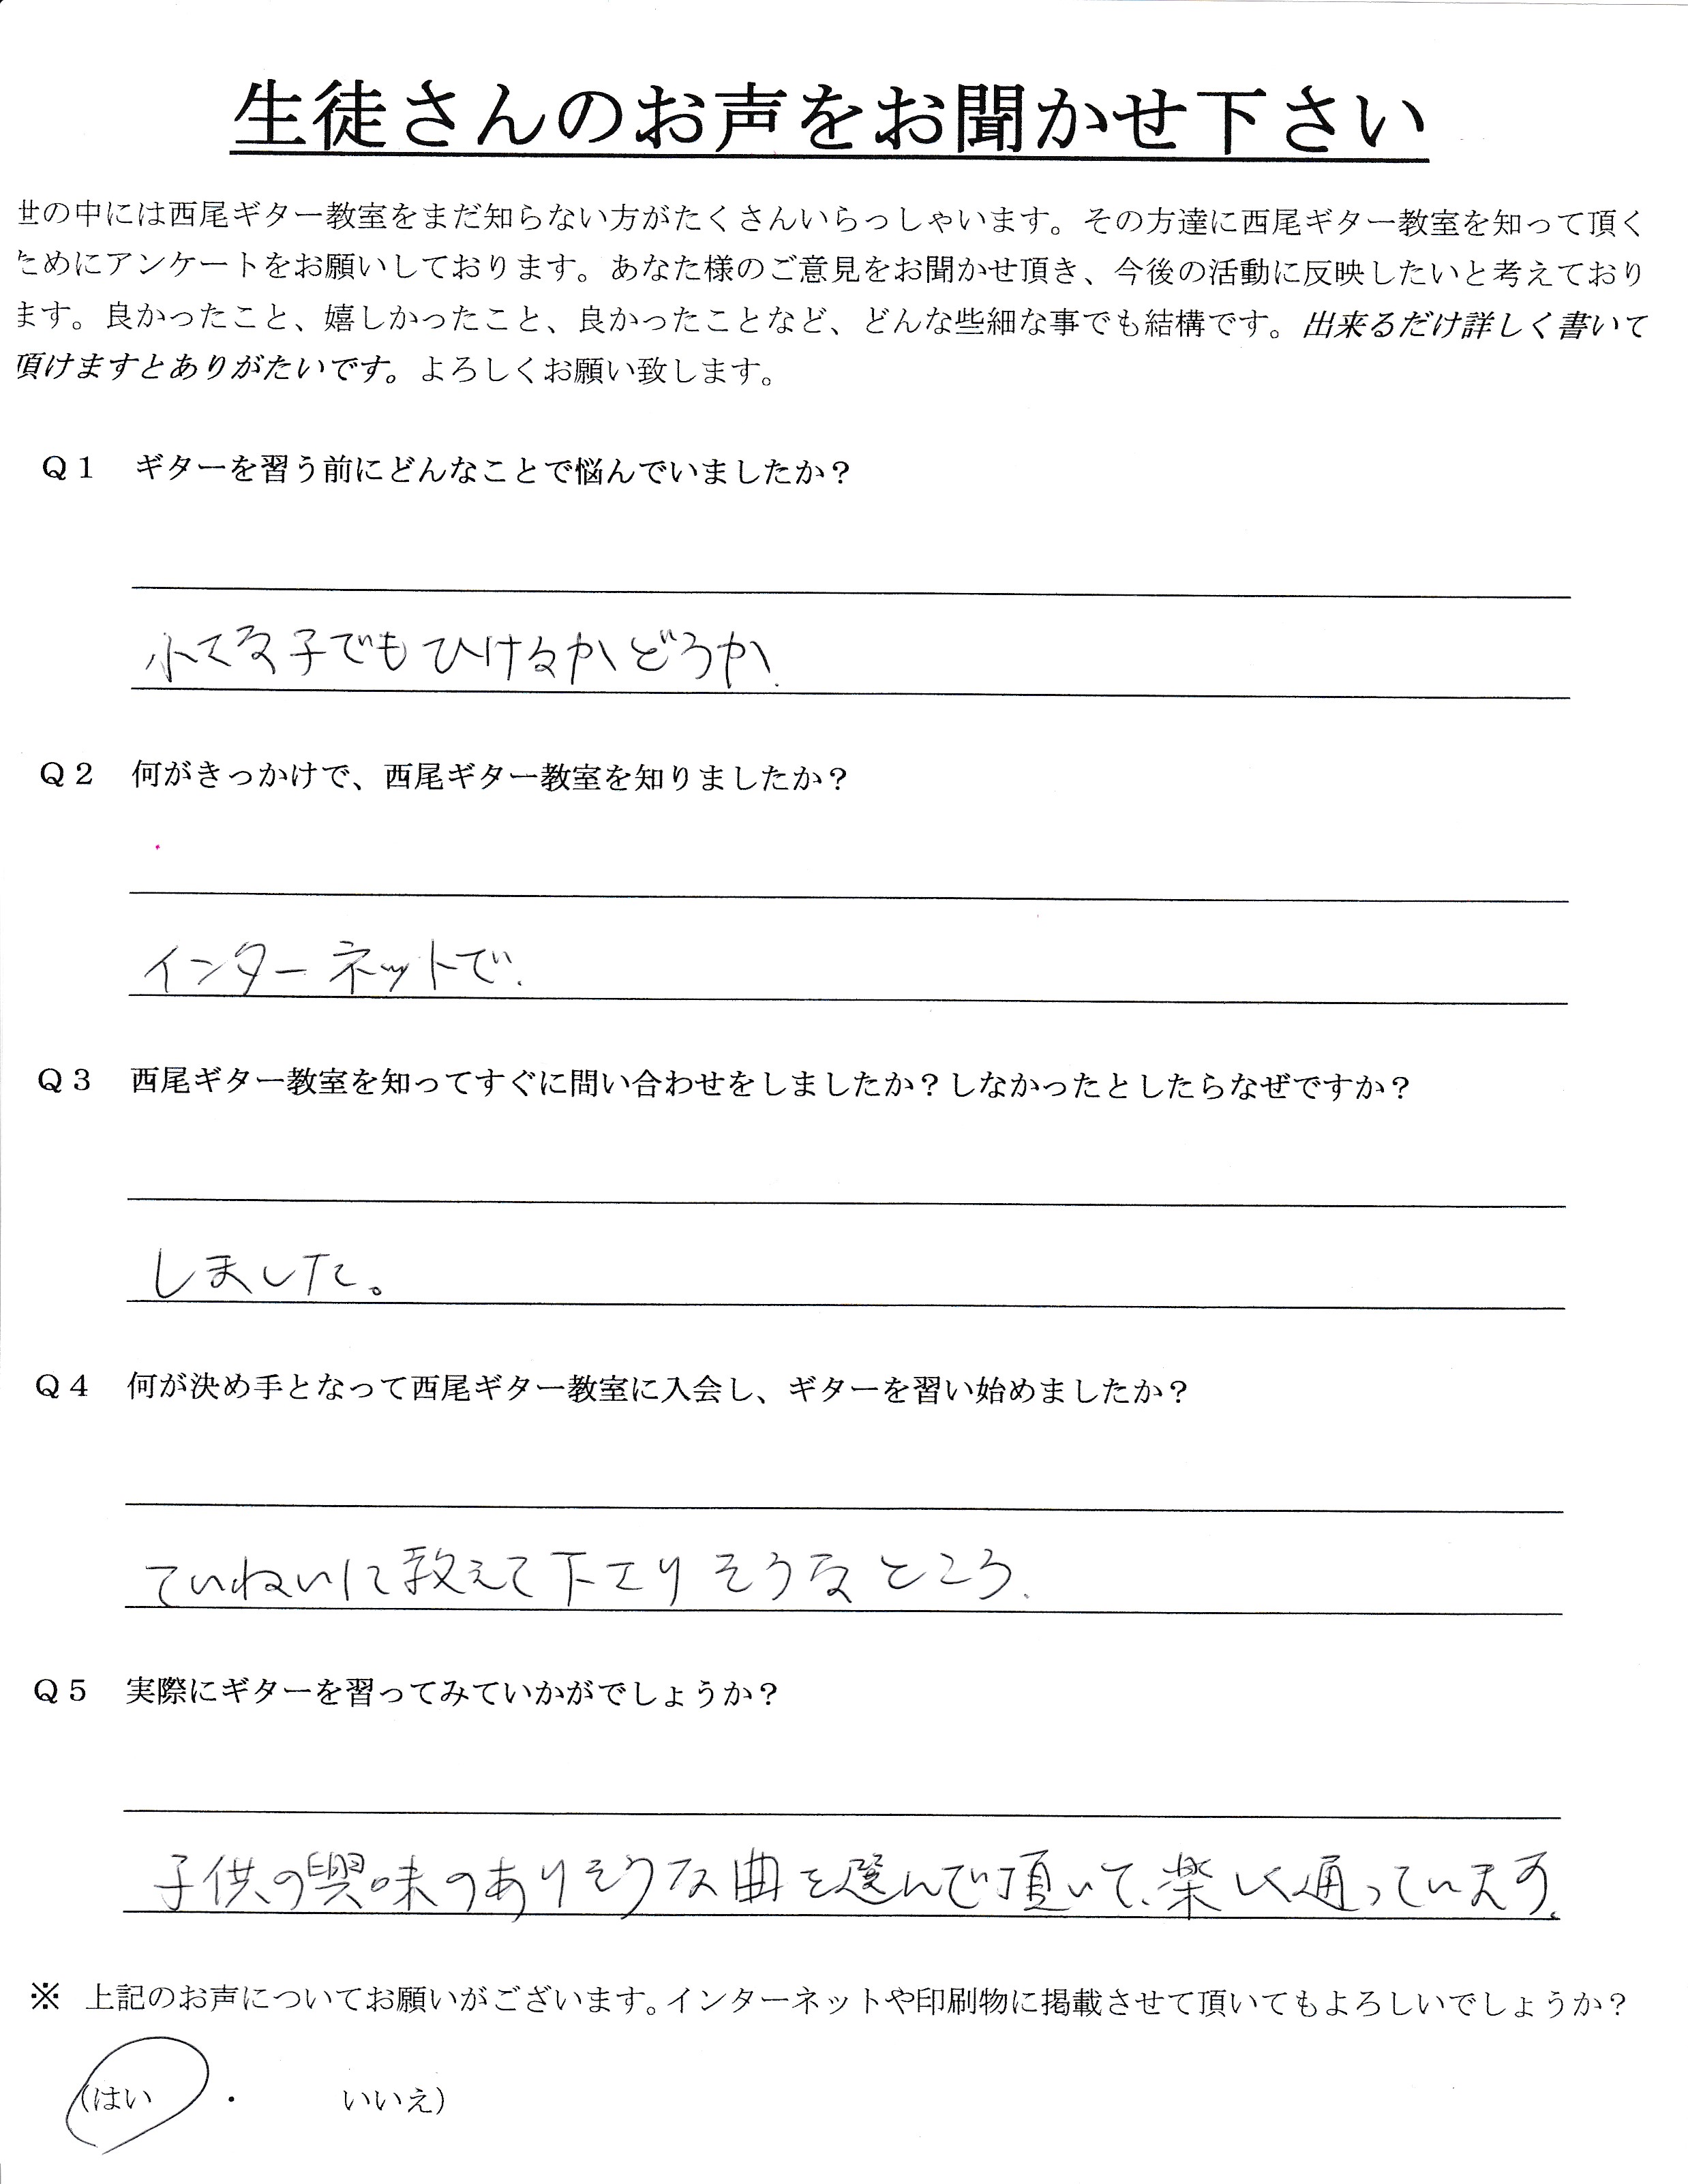 生徒さんのお声をお聞かせ下さい
世の中には西尾ギター教室をまだ知らない方がたくさんいらっしゃいます。その方達に西尾ギター教室を知って頂く
ためにアンケートをお願いしております。あなた様のご意見をお聞かせ頂き、今後の活動に反映したいと考えており
ます。良かったこと、嬉しかったこと、良かったことなど、どんな些細な事でも結構です。出来るだけ詳しく書いて
頂けますとありがたいです。よろしくお願い致します。
Q1 ギターを習う前にどんなことで悩んでいましたか？
小さな子でもひけるかどうか.
Q2 何がきっかけで、西尾ギター教室を知りましたか？
インターネットで.
Q3 西尾ギター教室を知ってすぐに問い合わせをしましたか？しなかったとしたらなぜですか？
しました。
Q4 何が決め手となって西尾ギター教室に入会し、ギターを習い始めましたか？
ていねいに教えて下さりそうなところ.
Q5 実際にギターを習ってみていかがでしょうか？
子供の興味のありそうな曲を選んで頂いて、楽しく通っています.
※ 上記のお声についてお願いがございます。インターネットや印刷物に掲載させて頂いてもよろしいでしょうか？
（はい ・ いいえ）